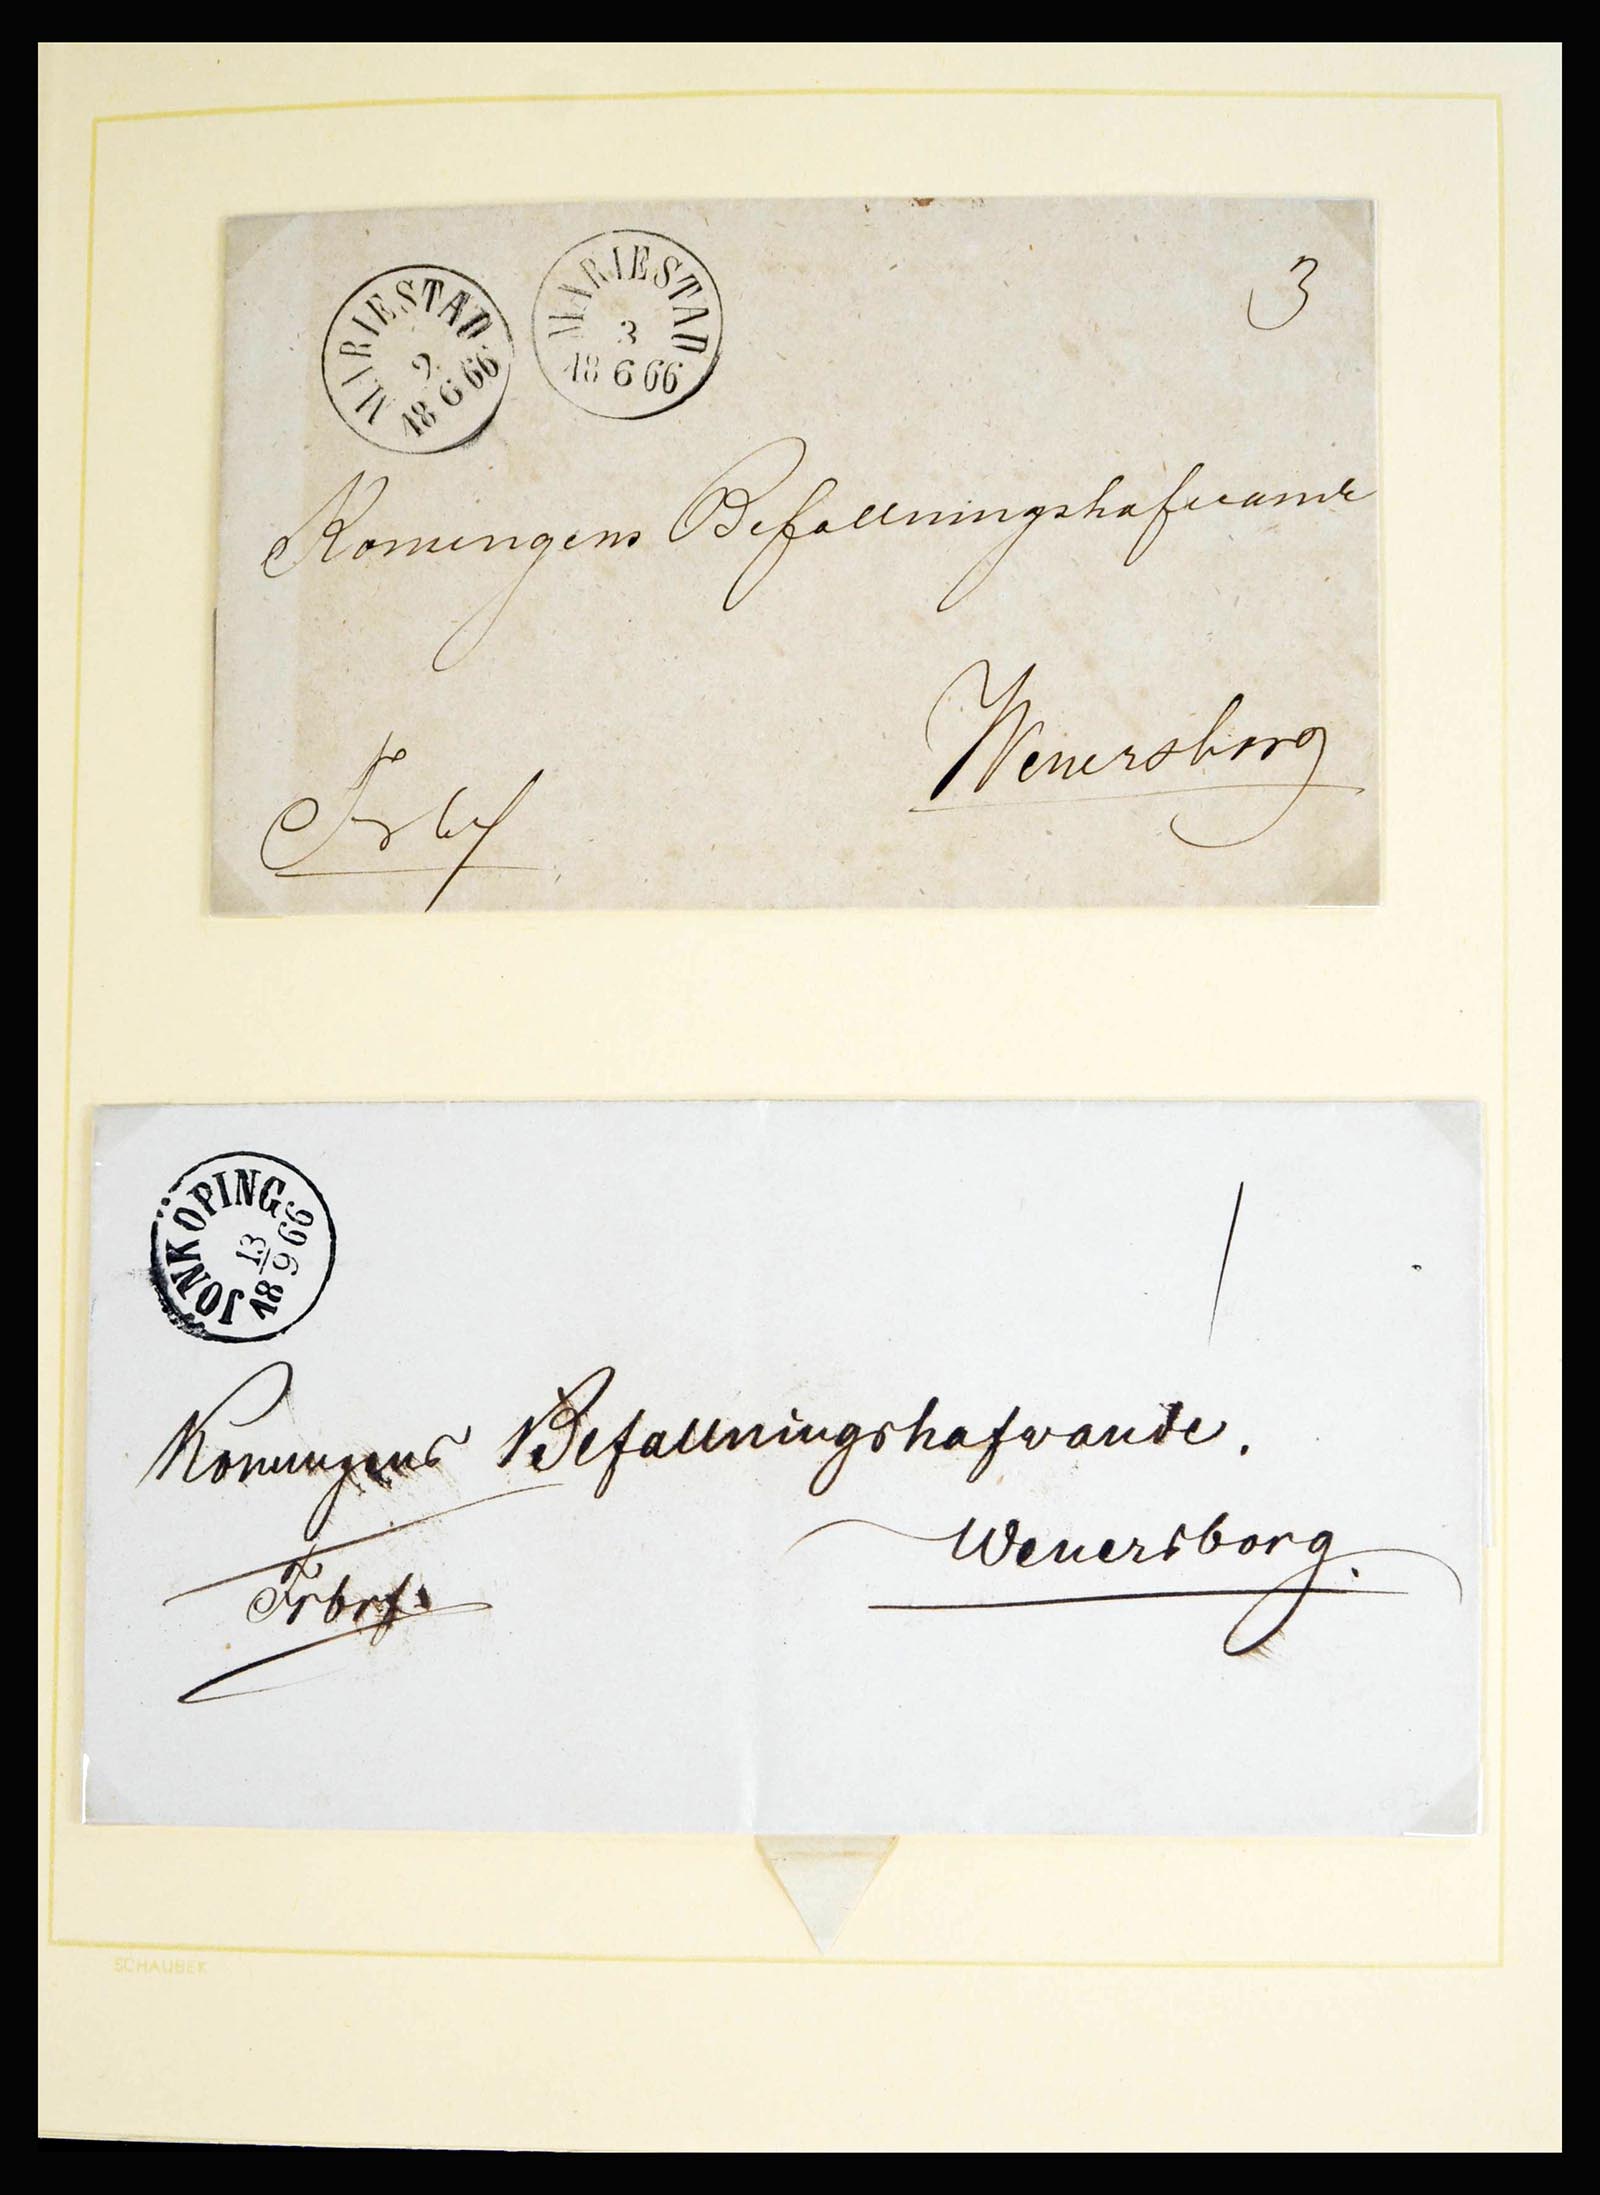 MARIESTAD
2
18 6 66
MARIESTAD
3
18 6 66
3
Konungens Befallningshafvande
Wenersborg
Frbf
JÖNKÖPING
13
18 9 66
1
Konungens Befallningshafvande.
Wenersborg.
Frbrf.
SCHAUBEK